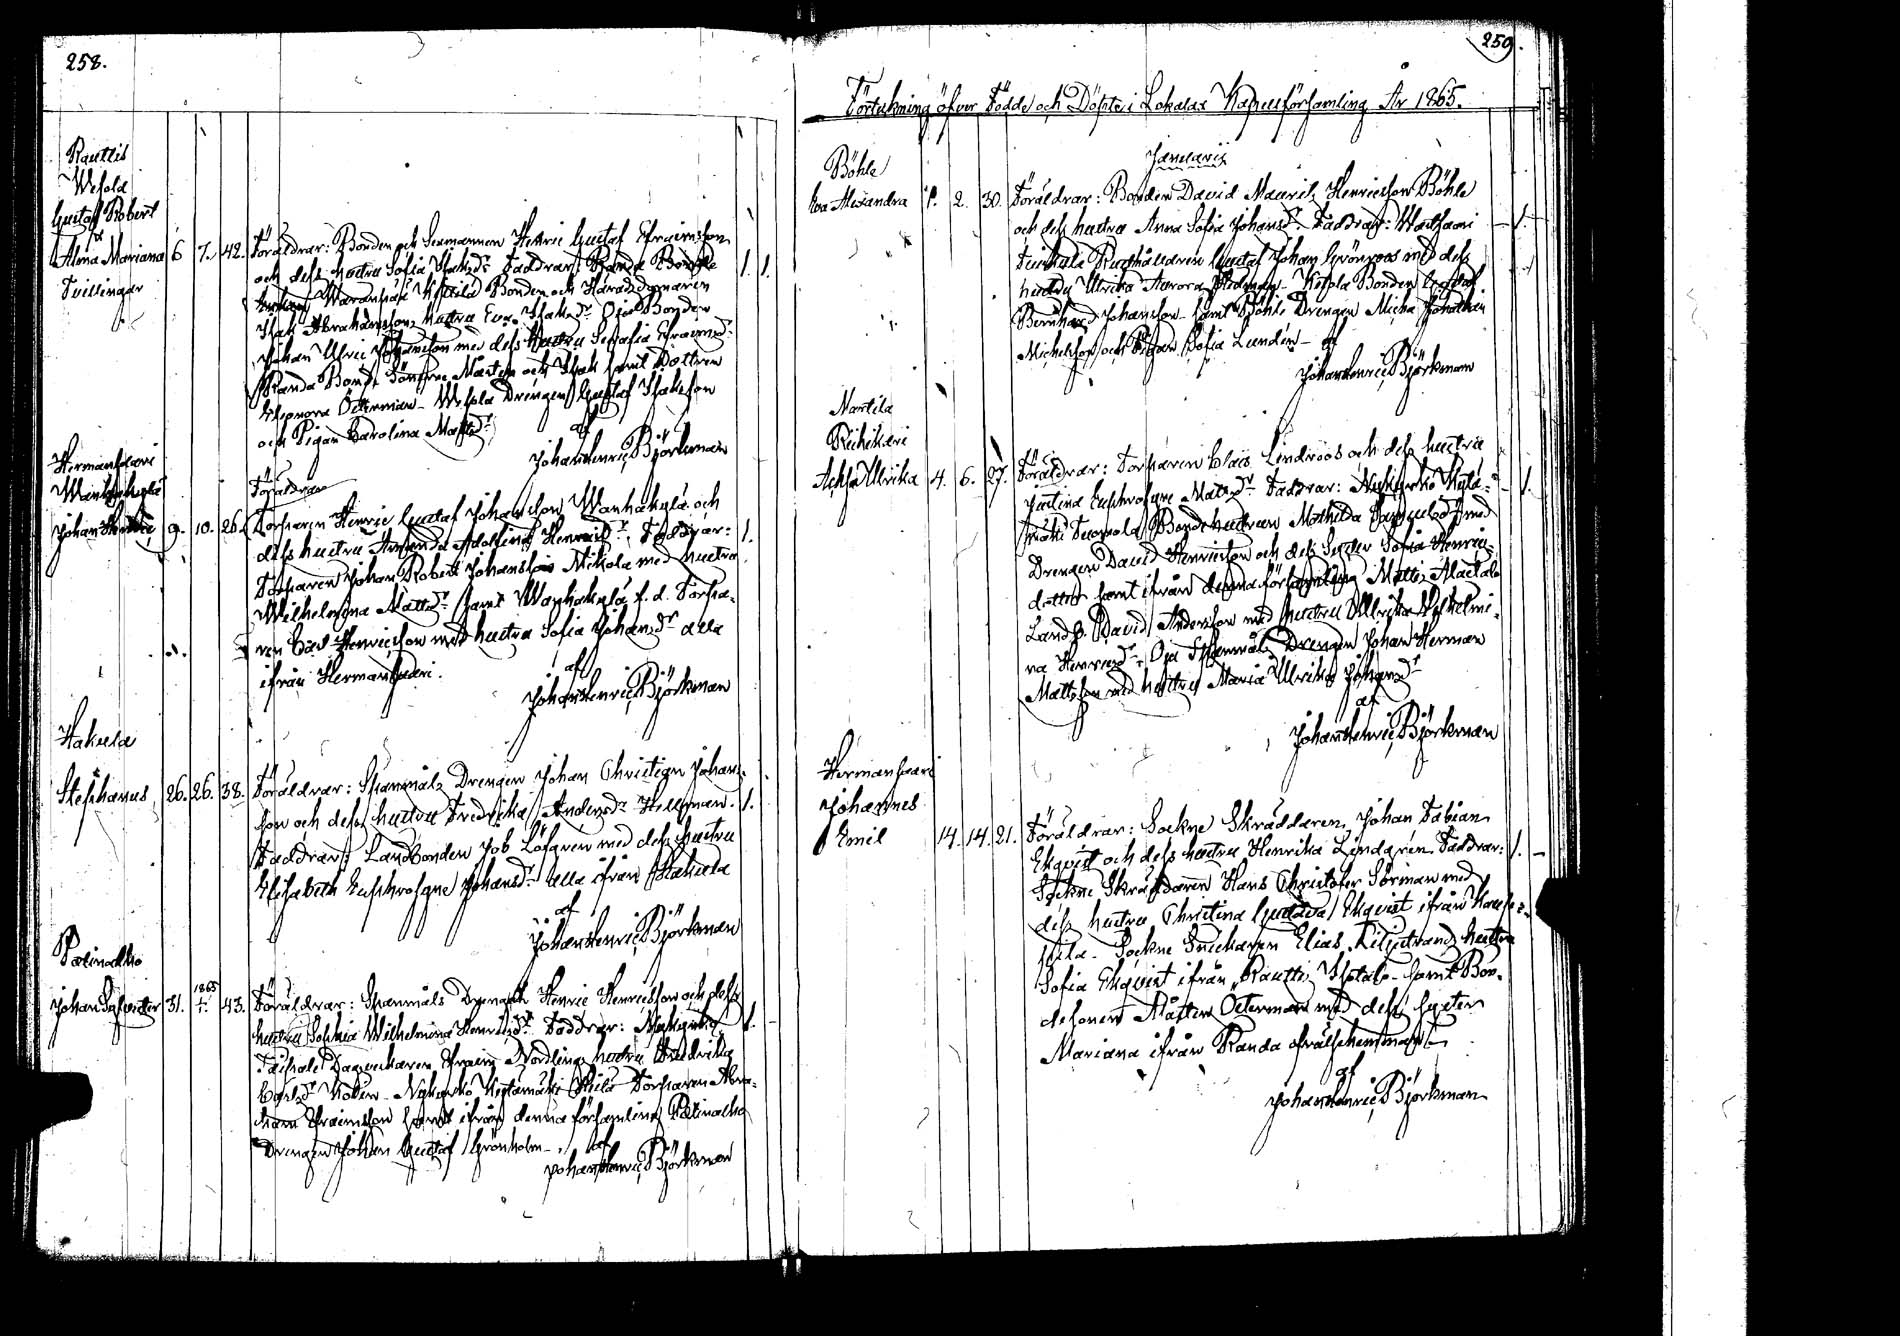 258.
Rautlis
Wesola
Gustaf Robert
Alma Mariana 6 7. 42. Föräldrar: Bonden och Sexmannen Henric Gustaf Efraimsson
Tvillingar
och dess hustru Sofia Isaksdr Faddrar: Randa Bonde
Waranpää Kettilä Bonden och Häradsdomaren
Isak Abrahamsson, hustru Eva Isaksdr Ojas Bonden
Johan Ulric Johansson med dess hustru Serafia Efraimsdr
Randa Bonde Sönerne Mårten och Isak samt Dottren
Eleonora Österman - Wesola Drengen Gustaf Isaksson
och Pigan Carolina Matsdr
af
Johan Henric Björkman
Hermansaari
Wanhakylä
Föräldrar
Johan Henric 9. 10. 26. Torparen Henric Gustaf Johansson Wanhakylä och
dess hustru Amanda Adolfina Henricsdr Faddrar: 1.
Torparen Johan Robert Johansson Mikola med hustru
Wilhelmina Mattsdr samt Wanhakylä f.d. Torpa-
ren Carl Henricsson med hustru Sofia Johansdr alla
ifrån Hermansaari.
af
Johan Henric Björkman
Hakula
Stephanus 26. 26. 38. Föräldrar: Spanmåls Drengen Johan Christian Johans-
son och dess hustru Fredrika Andersdr Hellman. 1.
Faddrar: Landbonden Job Löfgren med dess hustru
Elisabeth Euphrosyne Johansdr alla ifrån Hakula
af
Johan Henric Björkman
Palinalho
1865
Johan Sylvester 31. 1. 43. Föräldrar: Spanmåls Drengen Henric Henricsson och dess
hustru Sophia Wilhelmina Henricsdr Faddrar: Nykyrko 1.
Taipale Dagsverkaren Efraim Nordling, hustru Fredrika
Carlsdr - Nykyrko Torparen Abra-
ham Efraimsson samt ifrån denna församling Palinalho
Drengen Johan Gustaf Grönholm - af
Johan Henric Björkman
259.
Förtekning öfver Födde och Döpte i Lokalax Kapellförsamling År 1865.
Januarii
Böhle
Eva Alexandra 1. 2. 30. Föräldrar: Bonden David Maurits Henricsson Böhle
och dess hustru Anna Sofia Johansdr Faddrar: 1.
Rusthållaren Gustaf Johan Grönroos med dess
hustru Ulrika Aurora Hedman - Bonden Gustaf
Bernhard Johansson - samt Böhle Drengen Micha Johathan
Michelsson och Pigan Sofia Lundén - af
Johan Henric Björkman
Nartila
Riihikari
Achsa Ulrika 4. 6. 27. Föräldrar: Torparen Clas Lindroos och dess hustru
Justina Euphrosyne Matsdr Faddrar: Nykyrko Kylä- 1.
mäki Tuorpola Bondehustrun Mathilda med
Drengen David Henricsson och dess Syster Sofia Henrics-
dotter samt ifrån denna församling Mattis Alatalo
Landb. David Andersson med hustru Ulrika Wilhelmi-
na Henricsdr, Oja Spanmåls Drengen Johan Herman
Mattsson med hustru Maria Ulrika Johansdr
af
Johan Henric Björkman
Hermansaari
Johannes
Emil 14. 14. 21. Föräldrar: Sockne Skräddaren Johan Fabian
Ekqvist och dess hustru Henrika Lindgrén. Faddrar: 1.
Sockne Skräddaren Hans Christofer Sörman med
dess hustru Christina Gustava Ekqvist ifrån
Sockne Snickaren Elias Liljestrand, hustru
Sofia Ekqvist ifrån Rautlis Isotalo - samt Bon-
desonen Mårten Österman med dess syster
Mariana ifrån Randa frälsehemman
af
Johan Henric Björkman